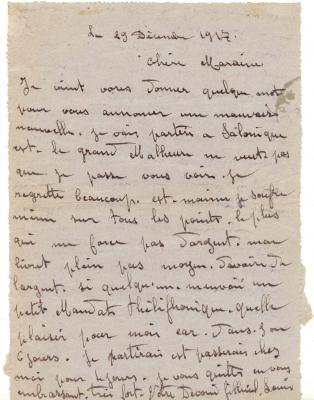 Le 29 Décembre 1917.
Chère Maraine
Je vint vous donner quelque mot
pour vous anoncer une mauvais
nouvelle. je vais partir a Salonique
est. le grand Malheur ne veut pas
que je passe vous voir. je
regrette beaucoup. est. moime je souffre
même sur tous les points. le plus
qui me force pas d'argent. mon
livret plein pas moyen. d'avoir. de
l'argent. si quelqu'un. m'envoié un
petit Mandat théléfronique. quelle
plaisir pour moi car. dans. 5 ou
6 jours. Je partirais est passerais chez
moi pour 4 jours. Je vous quitte en vous
embrassant. très fort. Votre Devoué Filleul. Louis